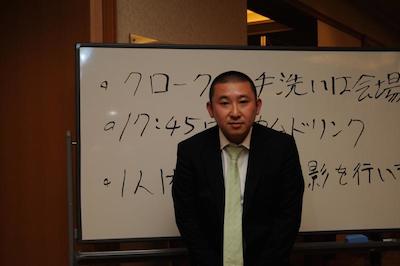 • クローク 手洗いは会場
• 17:45 ドリンク
• 1人 影を行い